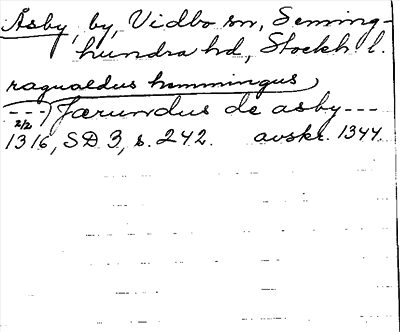 Åsby, by, Vidbo sn, Seming-
hundra hd, Stockh l.
ragualdus hemmingus
---) Jærundus de asby---
2/2
1316, SD 3, s. 242. avskr. 1344.